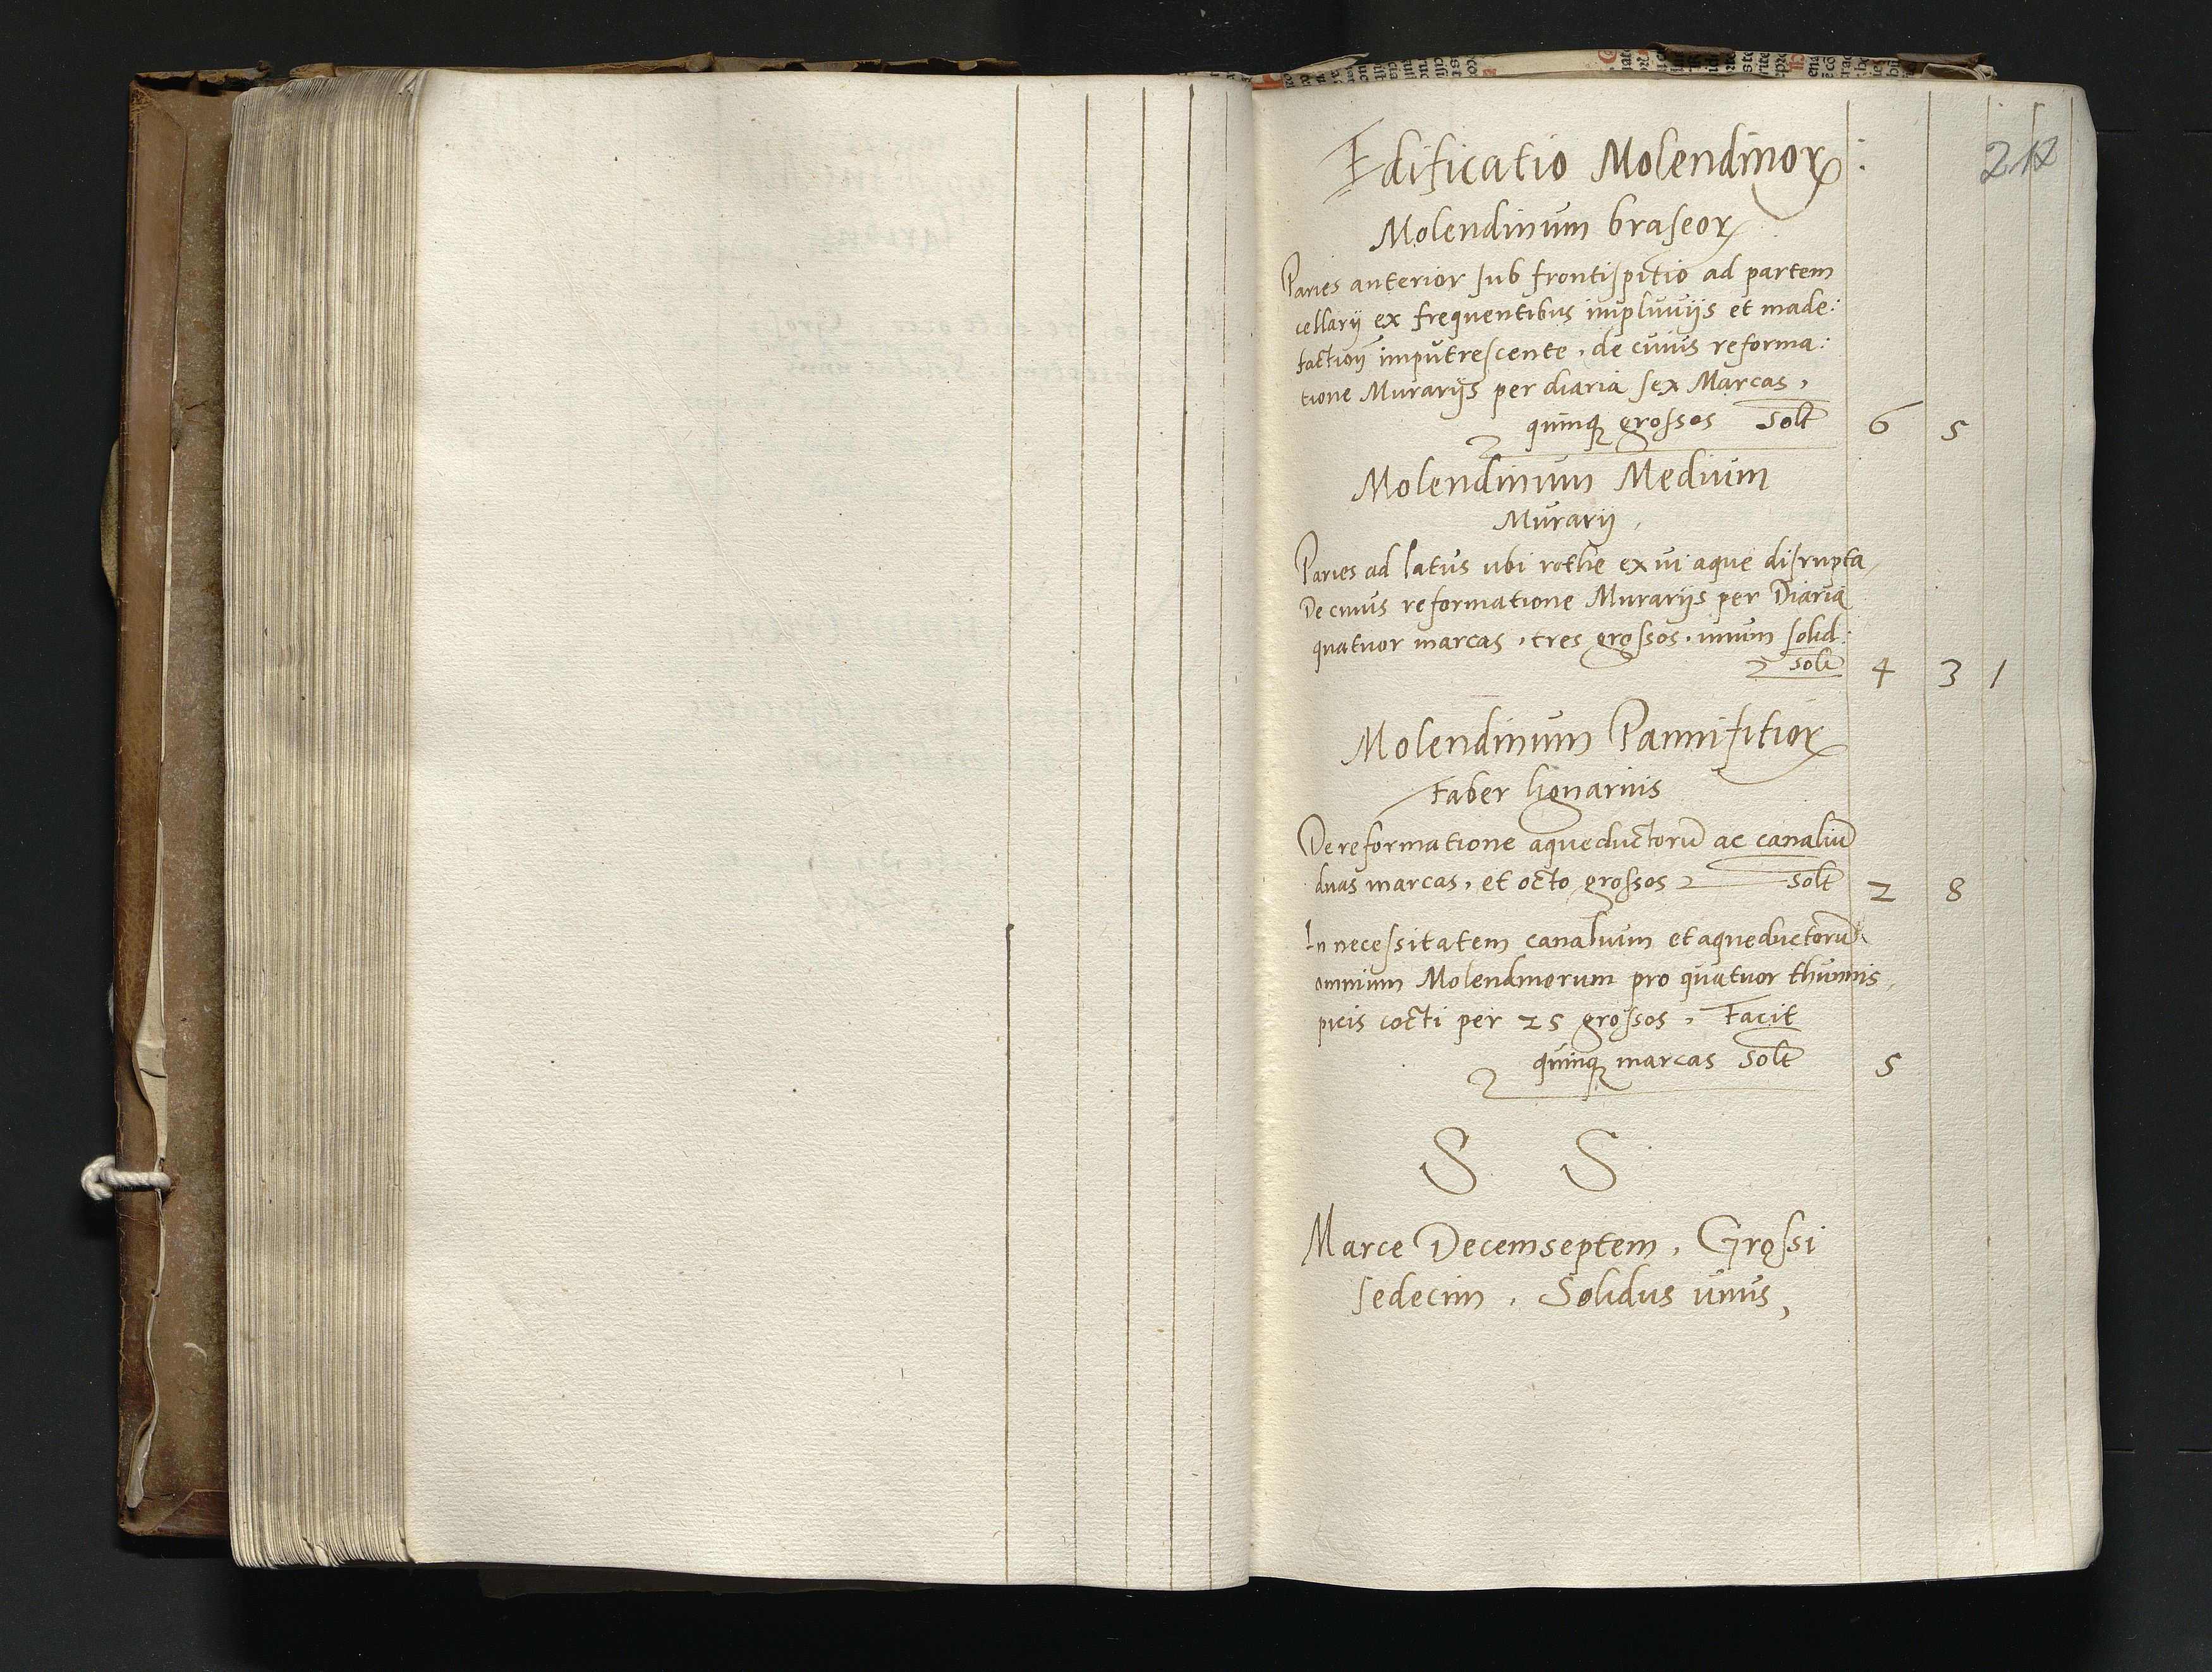 212
Edificatio Molendinorꝝ:
Molendinum braseorꝝ
Paries anterior sub frontispitio ad partem
cellarij ex frequentibus impluvijs et made:
factionj imputrescente, de cuius reforma:
tione Murarijs per diaria sex Marcas,
quinqꝫ grossos solt 6 5
Molendinum Medium
Murarij,
Paries ad latus ubi rothe ex vi aque disrupta,
De cuius reformatione Murarijs per Diaria
quatuor marcas, tres grossos, unum solid:
solt 4 3 1
Molendinum Pannifitiorꝝ
Faber lignarius
De reformatione aqueductorū ac canaliū
duas marcas, et octo grossos solt 2 8
In necessitatem canalium et aqueductorū
omnium Molendinorum pro quatuor thunnis,
picis cocti per 25 grossos, Facit
quinqꝫ marcas solt 5
S S
Marce Decemseptem, Grossi
sedecim, Solidus unus,